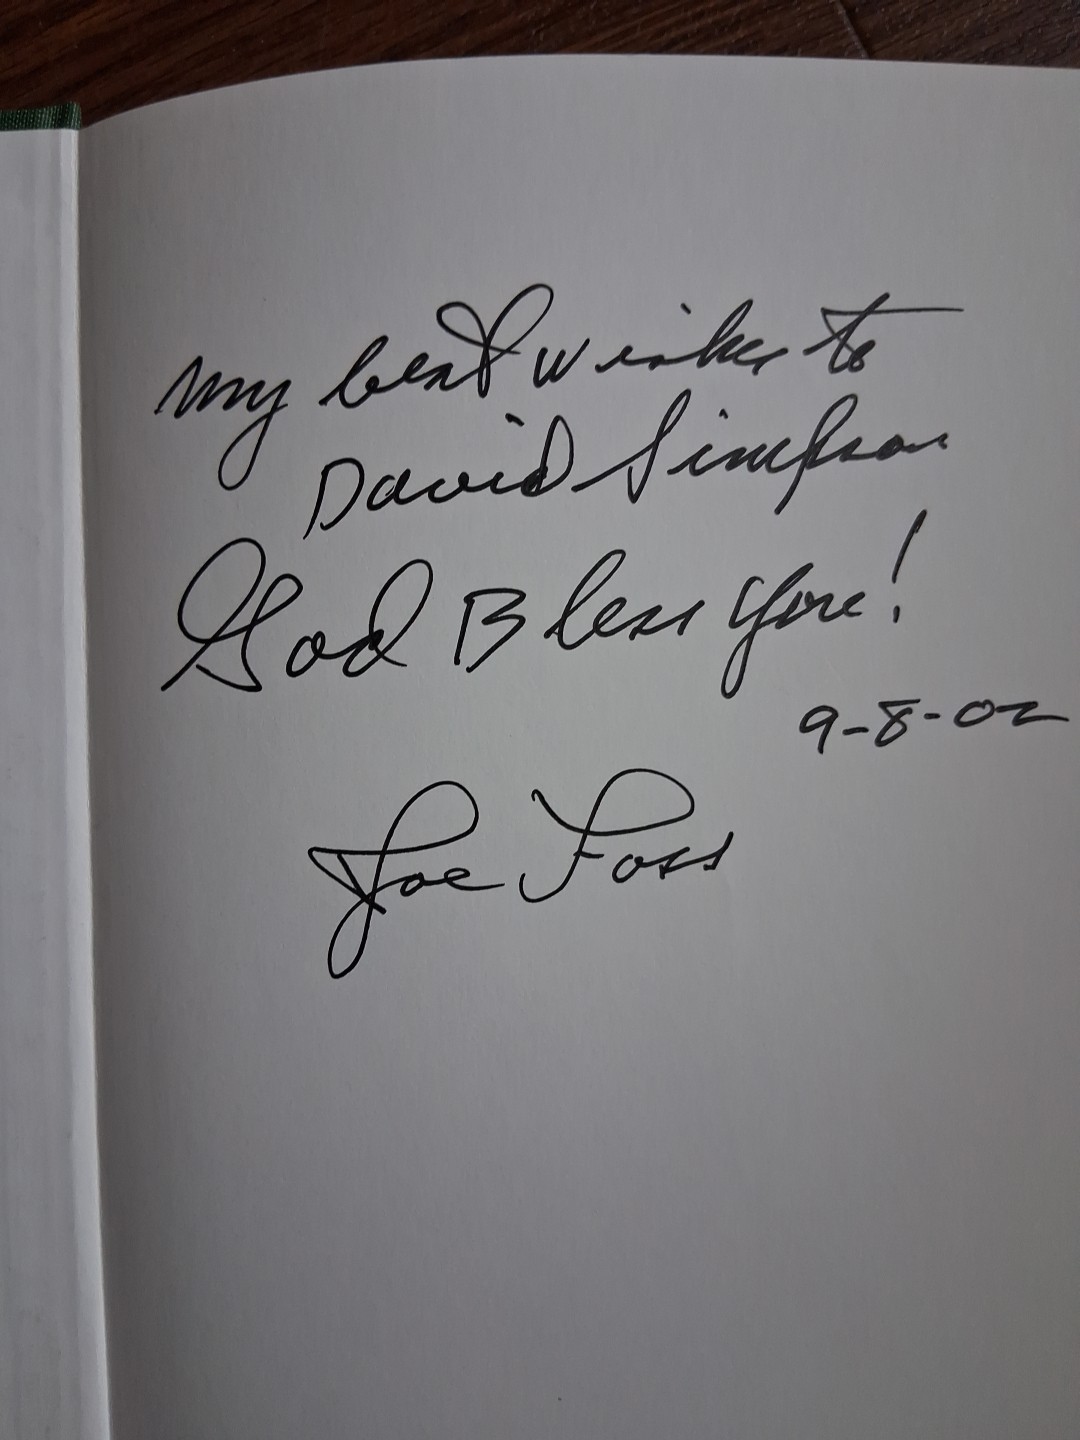 My best wishes to
David Simpson
God Bless you!
9-8-02
Joe Foss